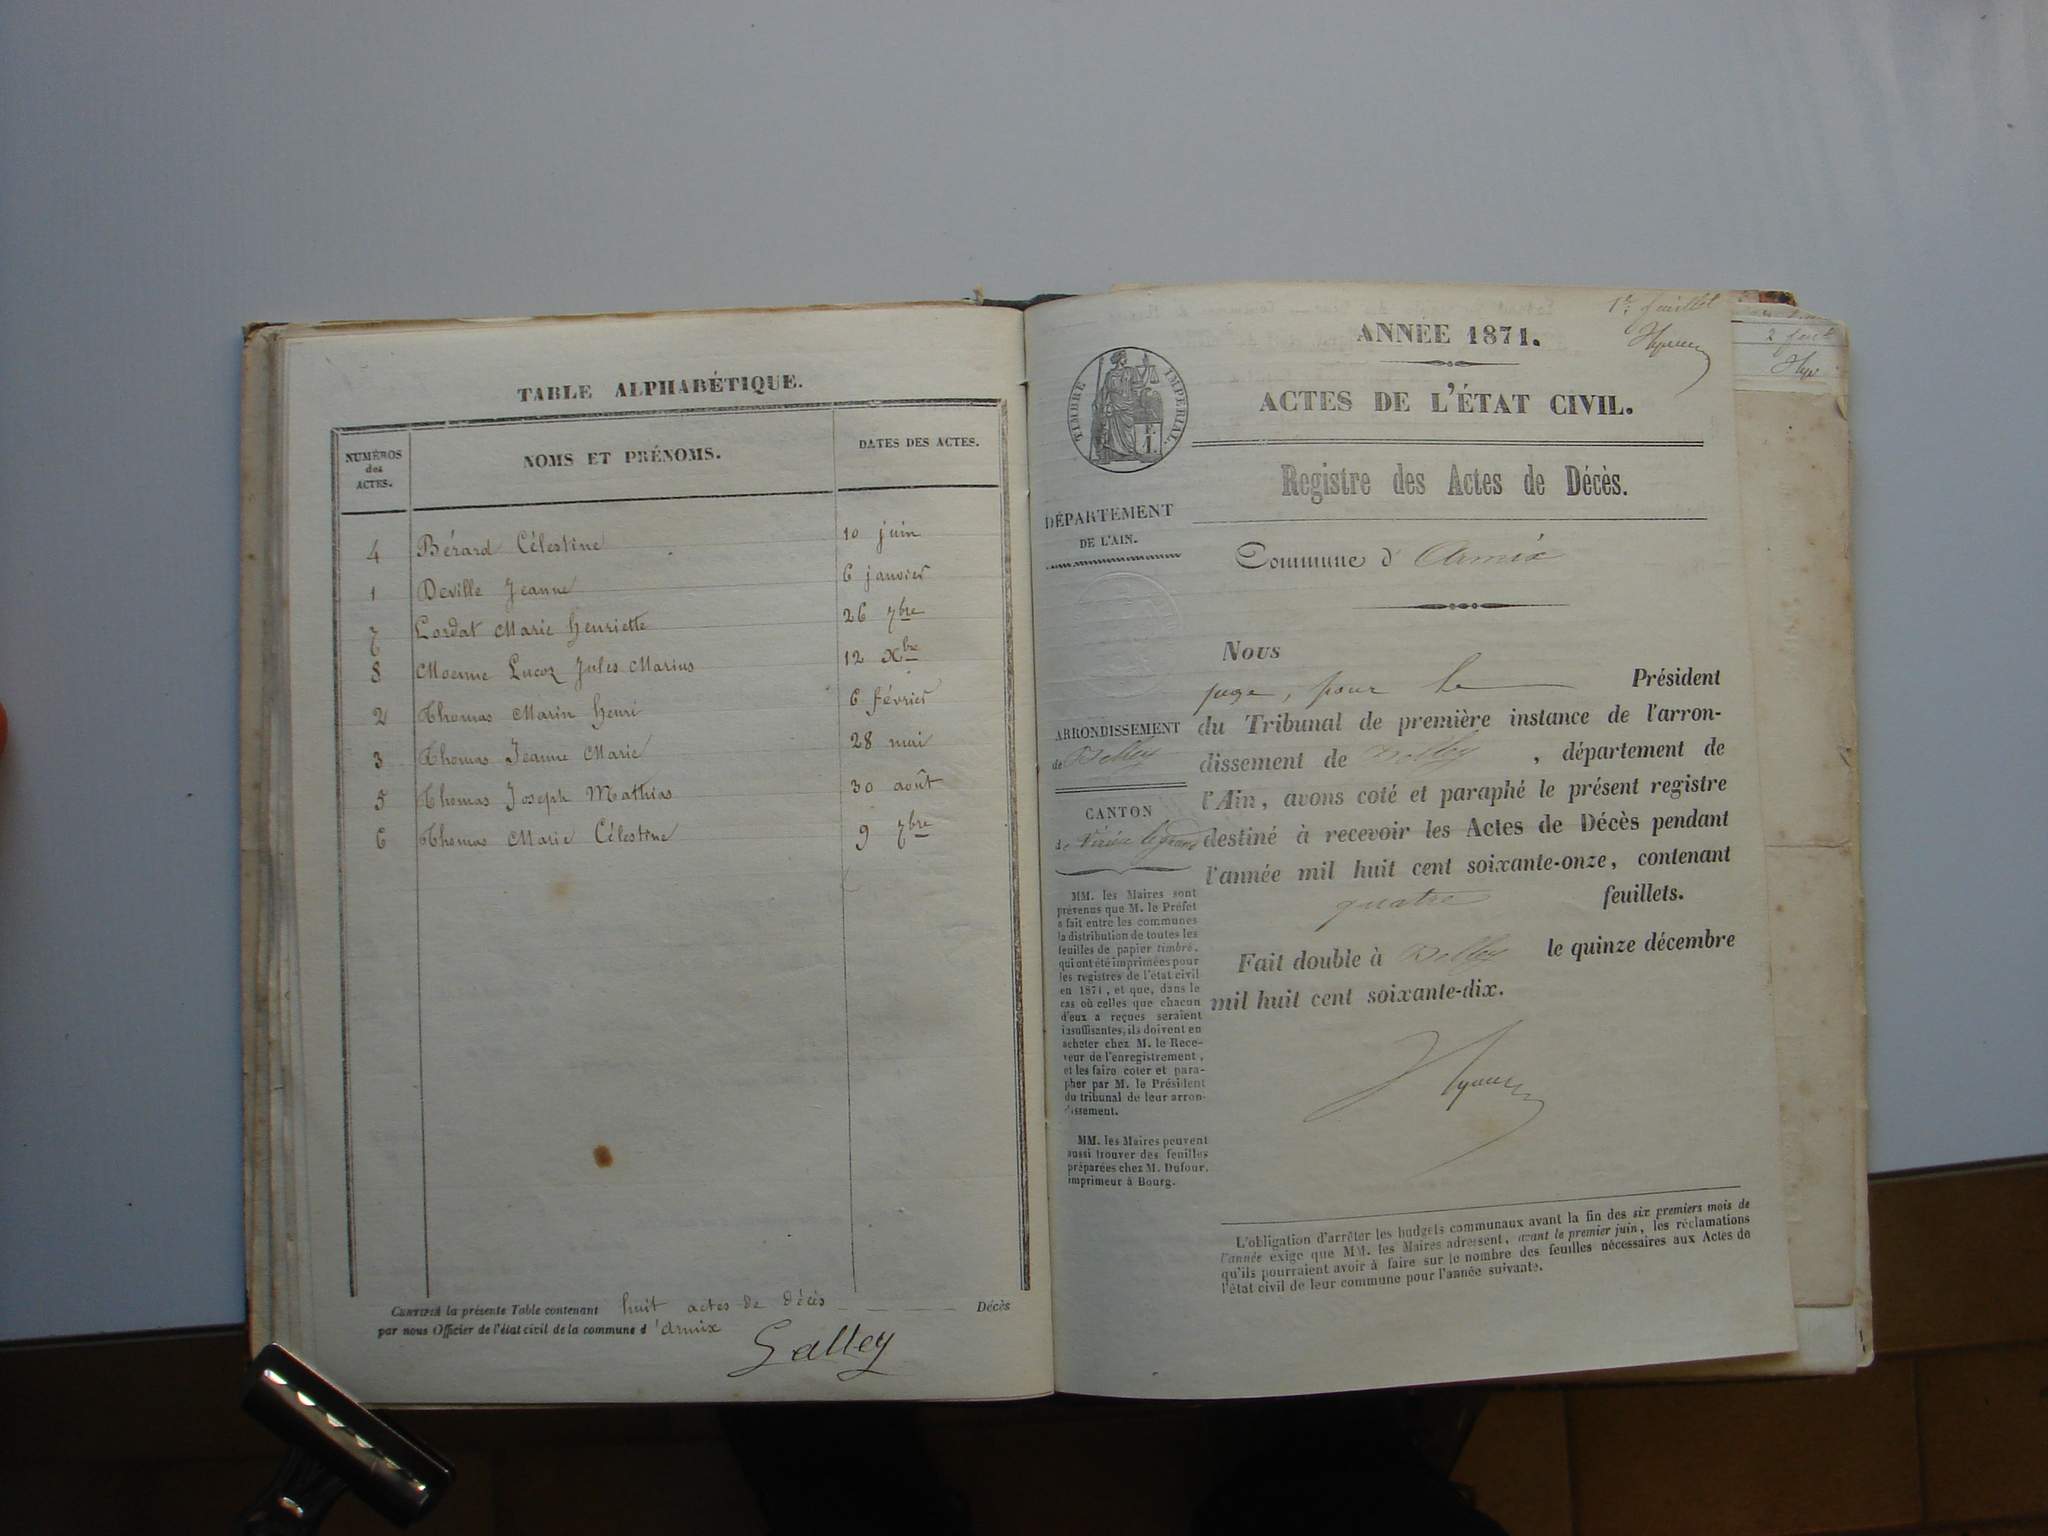 TABLE ALPHABÉTIQUE.
NUMÉROS des ACTES. NOMS ET PRÉNOMS. DATES DES ACTES.
4 Bérard Célestine 10 juin
1 Deville Jeanne 6 janvier
7 Lordat Marie Henriette 26 7bre
8 Moenne Lucoz Jules Marius 12 Xbre
2 Thomas Marin Henri 6 février
3 Thomas Jeanne Marie 28 mai
5 Thomas Joseph Mathias 30 août
6 Thomas Marie Célestine 9 7bre
CERTIFIÉ la présente Table contenant huit actes de décès Décès
par nous Officier de l'état civil de la commune d'Armix
Galley
1er feuillet
ANNÉE 1871.
TIMBRE IMPÉRIAL.
ACTES DE L'ÉTAT CIVIL.
Registre des Actes de Décès.
DÉPARTEMENT
DE L'AIN.
Commune d'Armix
Nous
juge, pour le Président
du Tribunal de première instance de l'arron-
dissement de Belley, département de
l'Ain, avons coté et paraphé le présent registre
destiné à recevoir les Actes de Décès pendant
l'année mil huit cent soixante-onze, contenant
quatre feuillets.
Fait double à Belley le quinze décembre
mil huit cent soixante-dix.
ARRONDISSEMENT
de Belley
CANTON
de Virieu le grand
MM. les Maires sont
prévenus que M. le Préfet
a fait entre les communes
la distribution de toutes les
feuilles de papier timbré,
qui ont été imprimées pour
les registres de l'état civil
en 1871, et que, dans le
cas où celles que chacun
d'eux a reçues seraient
insuffisantes, ils doivent en
acheter chez M. le Rece-
veur de l'enregistrement,
et les faire coter et para-
pher par M. le Président
du tribunal de leur arron-
dissement.
MM. les Maires peuvent
aussi trouver des feuilles
préparées chez M. Dufour,
imprimeur à Bourg.
L'obligation d'arrêter les budgets communaux avant la fin des six premiers mois de
l'année exige que MM. les Maires adressent, avant le premier juin, les réclamations
qu'ils pourraient avoir à faire sur le nombre des feuilles nécessaires aux Actes de
l'état civil de leur commune pour l'année suivante.